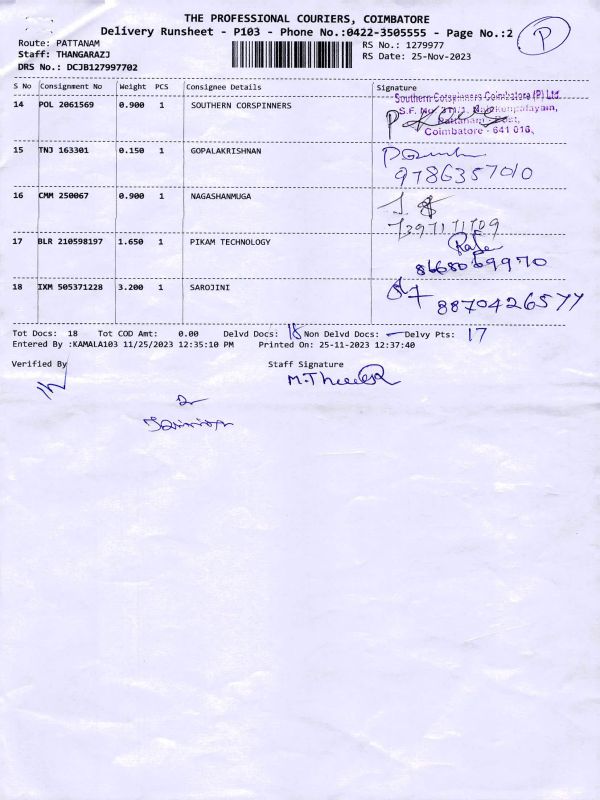 THE PROFESSIONAL COURIERS, COIMBATORE
Delivery Runsheet - P103 - Phone No.:0422-3505555 - Page No.:2
P
Route: PATTANAM
RS No.: 1279977
Staff: THANGARAZJ
RS Date: 25-Nov-2023
DRS No.: DCJB127997702
S No Consignment No Weight PCS Consignee Details Signature
14 POL 2061569 0.900 1 SOUTHERN CORSPINNERS
Southern Cotspinners Coimbatore (P) Ltd.
Coimbatore - 641 016.
15 TNJ 163301 0.150 1 GOPALAKRISHNAN
9786357010
16 CMM 250067 0.900 1 NAGASHANMUGA
7397171709
17 BLR 210598197 1.650 1 PIKAM TECHNOLOGY
8668069970
18 IXM 505371228 3.200 1 SAROJINI
8870426577
Tot Docs: 18 Tot COD Amt: 0.00 Delvd Docs: 18 Non Delvd Docs: - Delvy Pts: 17
Entered By :KAMALA103 11/25/2023 12:35:10 PM Printed On: 25-11-2023 12:37:40
Verified By Staff Signature